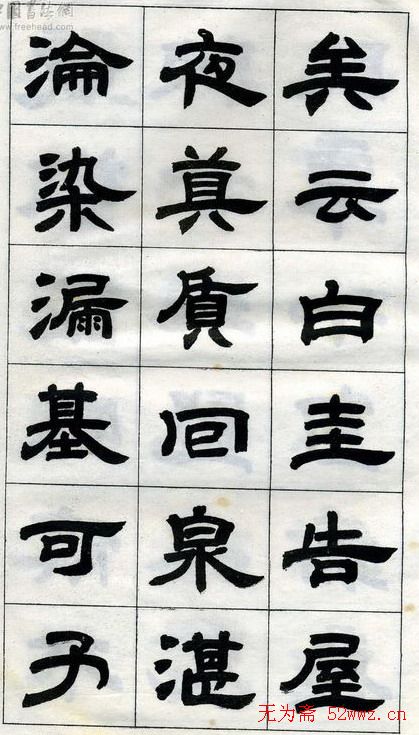 中國書法網
www.freehead.com
矣云白圭告屋
夜真質回泉湛
淪染漏基可予
无为斋 52wwz.cn